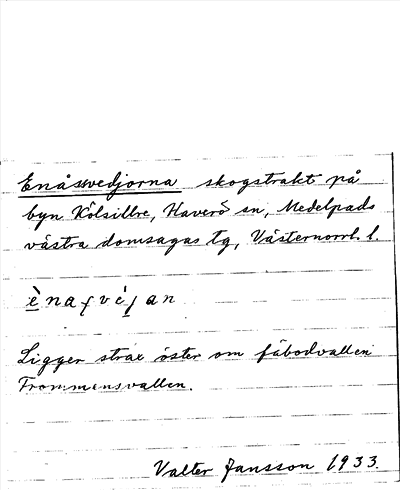 Enåsvedjorna skogstrakt på
byn Kölsillre, Haverö sn, Medelpads
västra domsagas tg, Västernorrl. l.
Ligger strax öster om fäbodvallen
Trommensvallen.
Valter Jansson 1933.